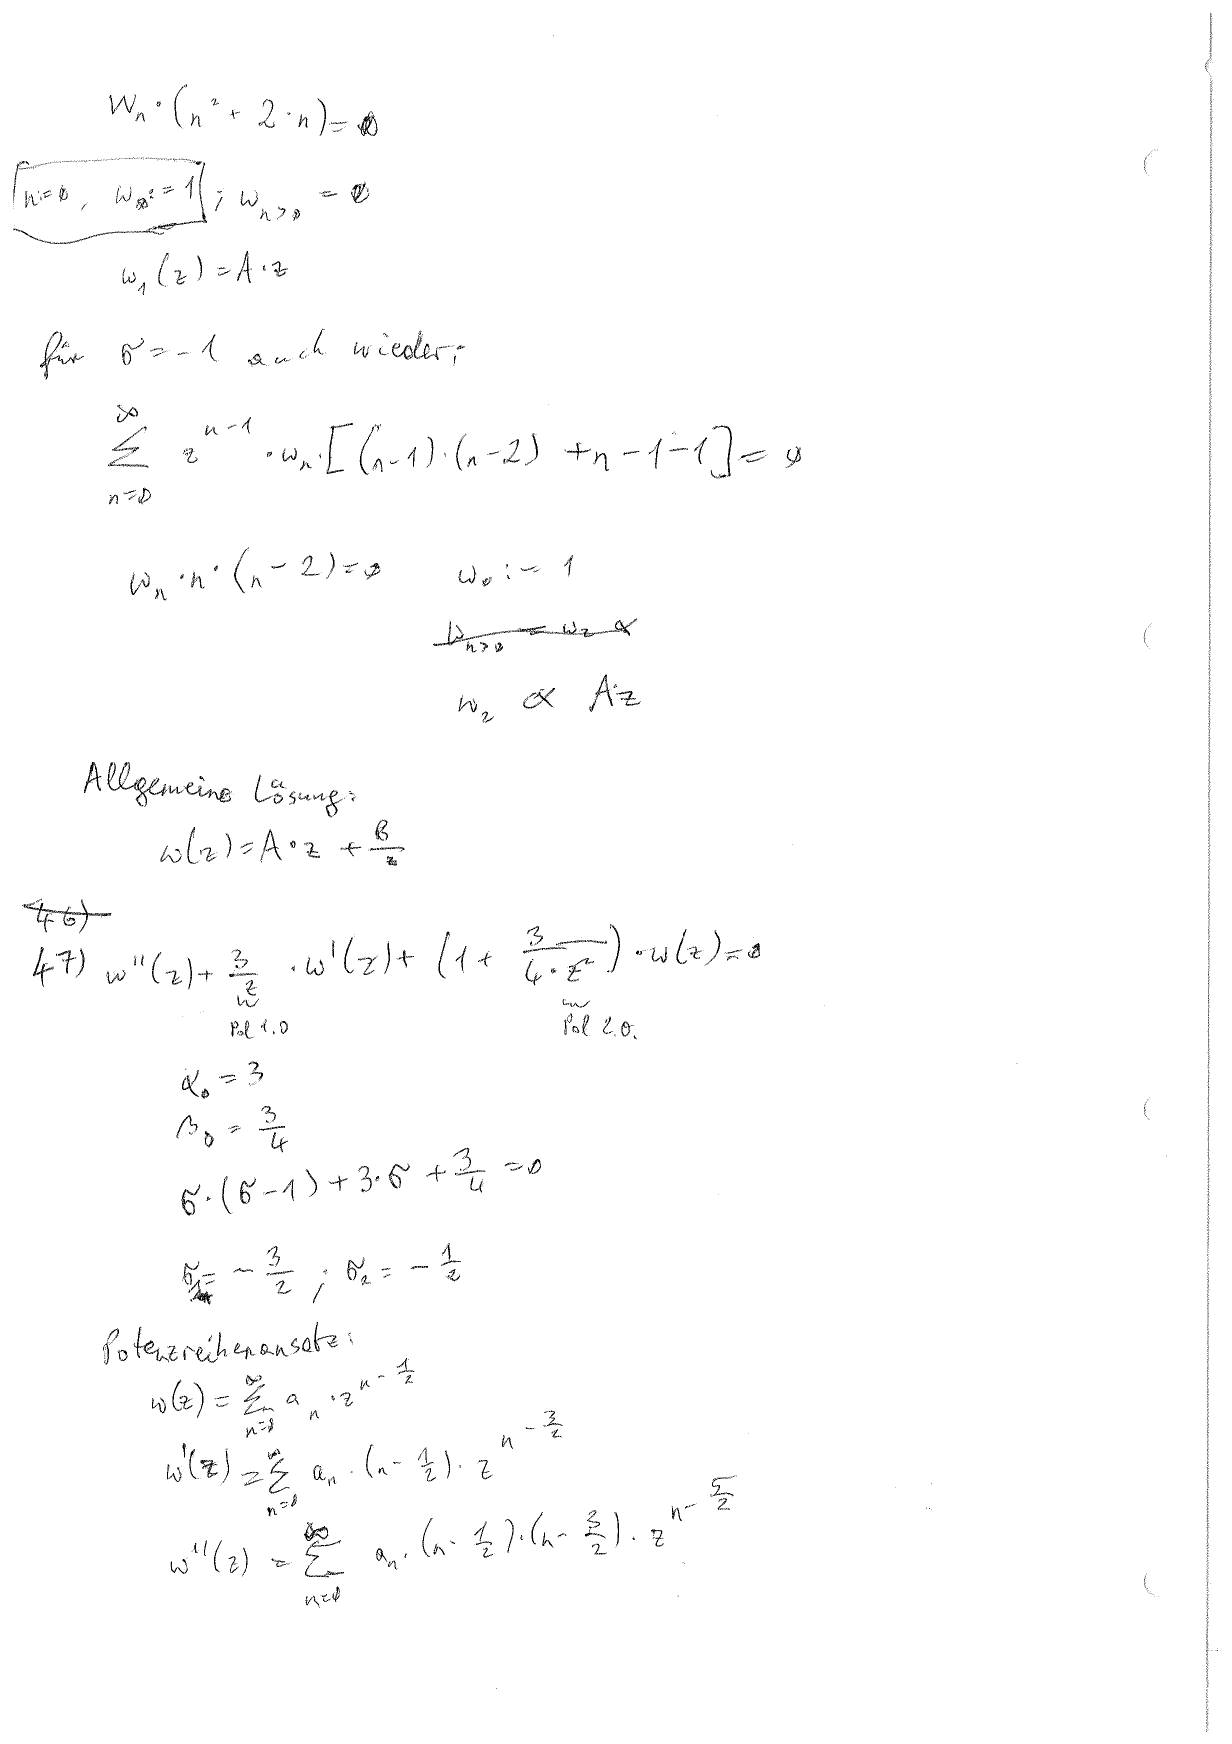 Wₙ · (n² + 2·n) = 0
n:=0, w₀ := 1 ; wₙ>₀ = 0
w₁(z) = A·z
für σ = -1 auch wieder:
∑_{n=0}^{∞} z^{n-1} · wₙ · [(n-1)·(n-2) + n-1-1] = 0
wₙ · n · (n-2) = 0   w₀ := 1
wₙ>₀ = w₂ ∝
w₂ ∝ A·z
Allgemeine Lösung:
w(z) = A·z + B/z
46)
47) w''(z) + 3/z · w'(z) + (1 + 3/(4·z²)) · w(z) = 0
Pol 1.O   Pol 2.O.
α₀ = 3
β₀ = 3/4
σ·(σ-1) + 3·σ + 3/4 = 0
σ₁ = -3/2 ; σ₂ = -1/2
Potenzreihenansatz:
w(z) = ∑_{n=0}^{∞} aₙ · z^{n-1/2}
w'(z) = ∑_{n=0}^{∞} aₙ · (n-1/2) · z^{n-3/2}
w''(z) = ∑_{n=0}^{∞} aₙ · (n-1/2)·(n-3/2) · z^{n-5/2}